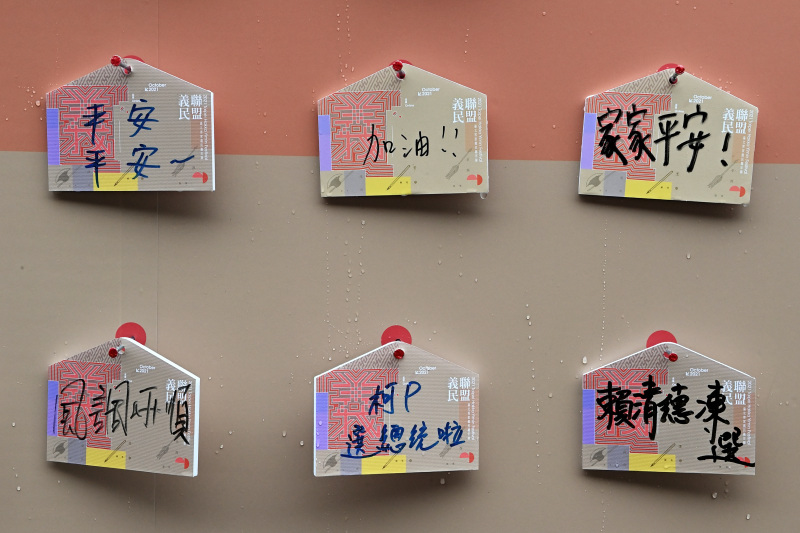 October
2021
義民
聯盟
平安
平安~
October
2021
義民
聯盟
加油!!
October
2021
義民
聯盟
家家平安!
October
2021
義民
聯盟
風調雨順
October
2021
義民
聯盟
柯P
選總統啦
October
2021
義民
聯盟
賴清德凍
選